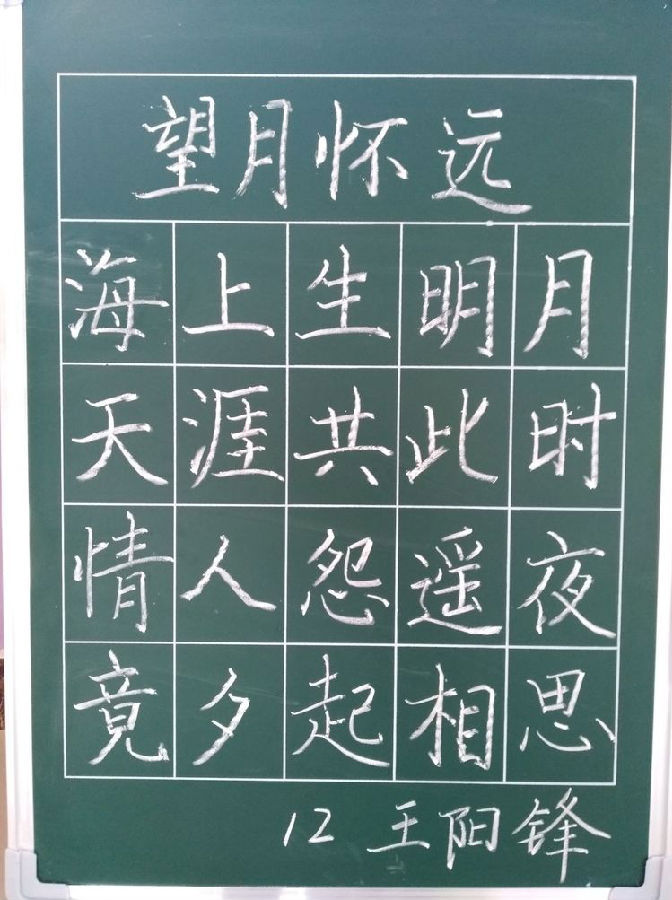 望月怀远
海上生明月
天涯共此时
情人怨遥夜
竟夕起相思
12 王阳锋